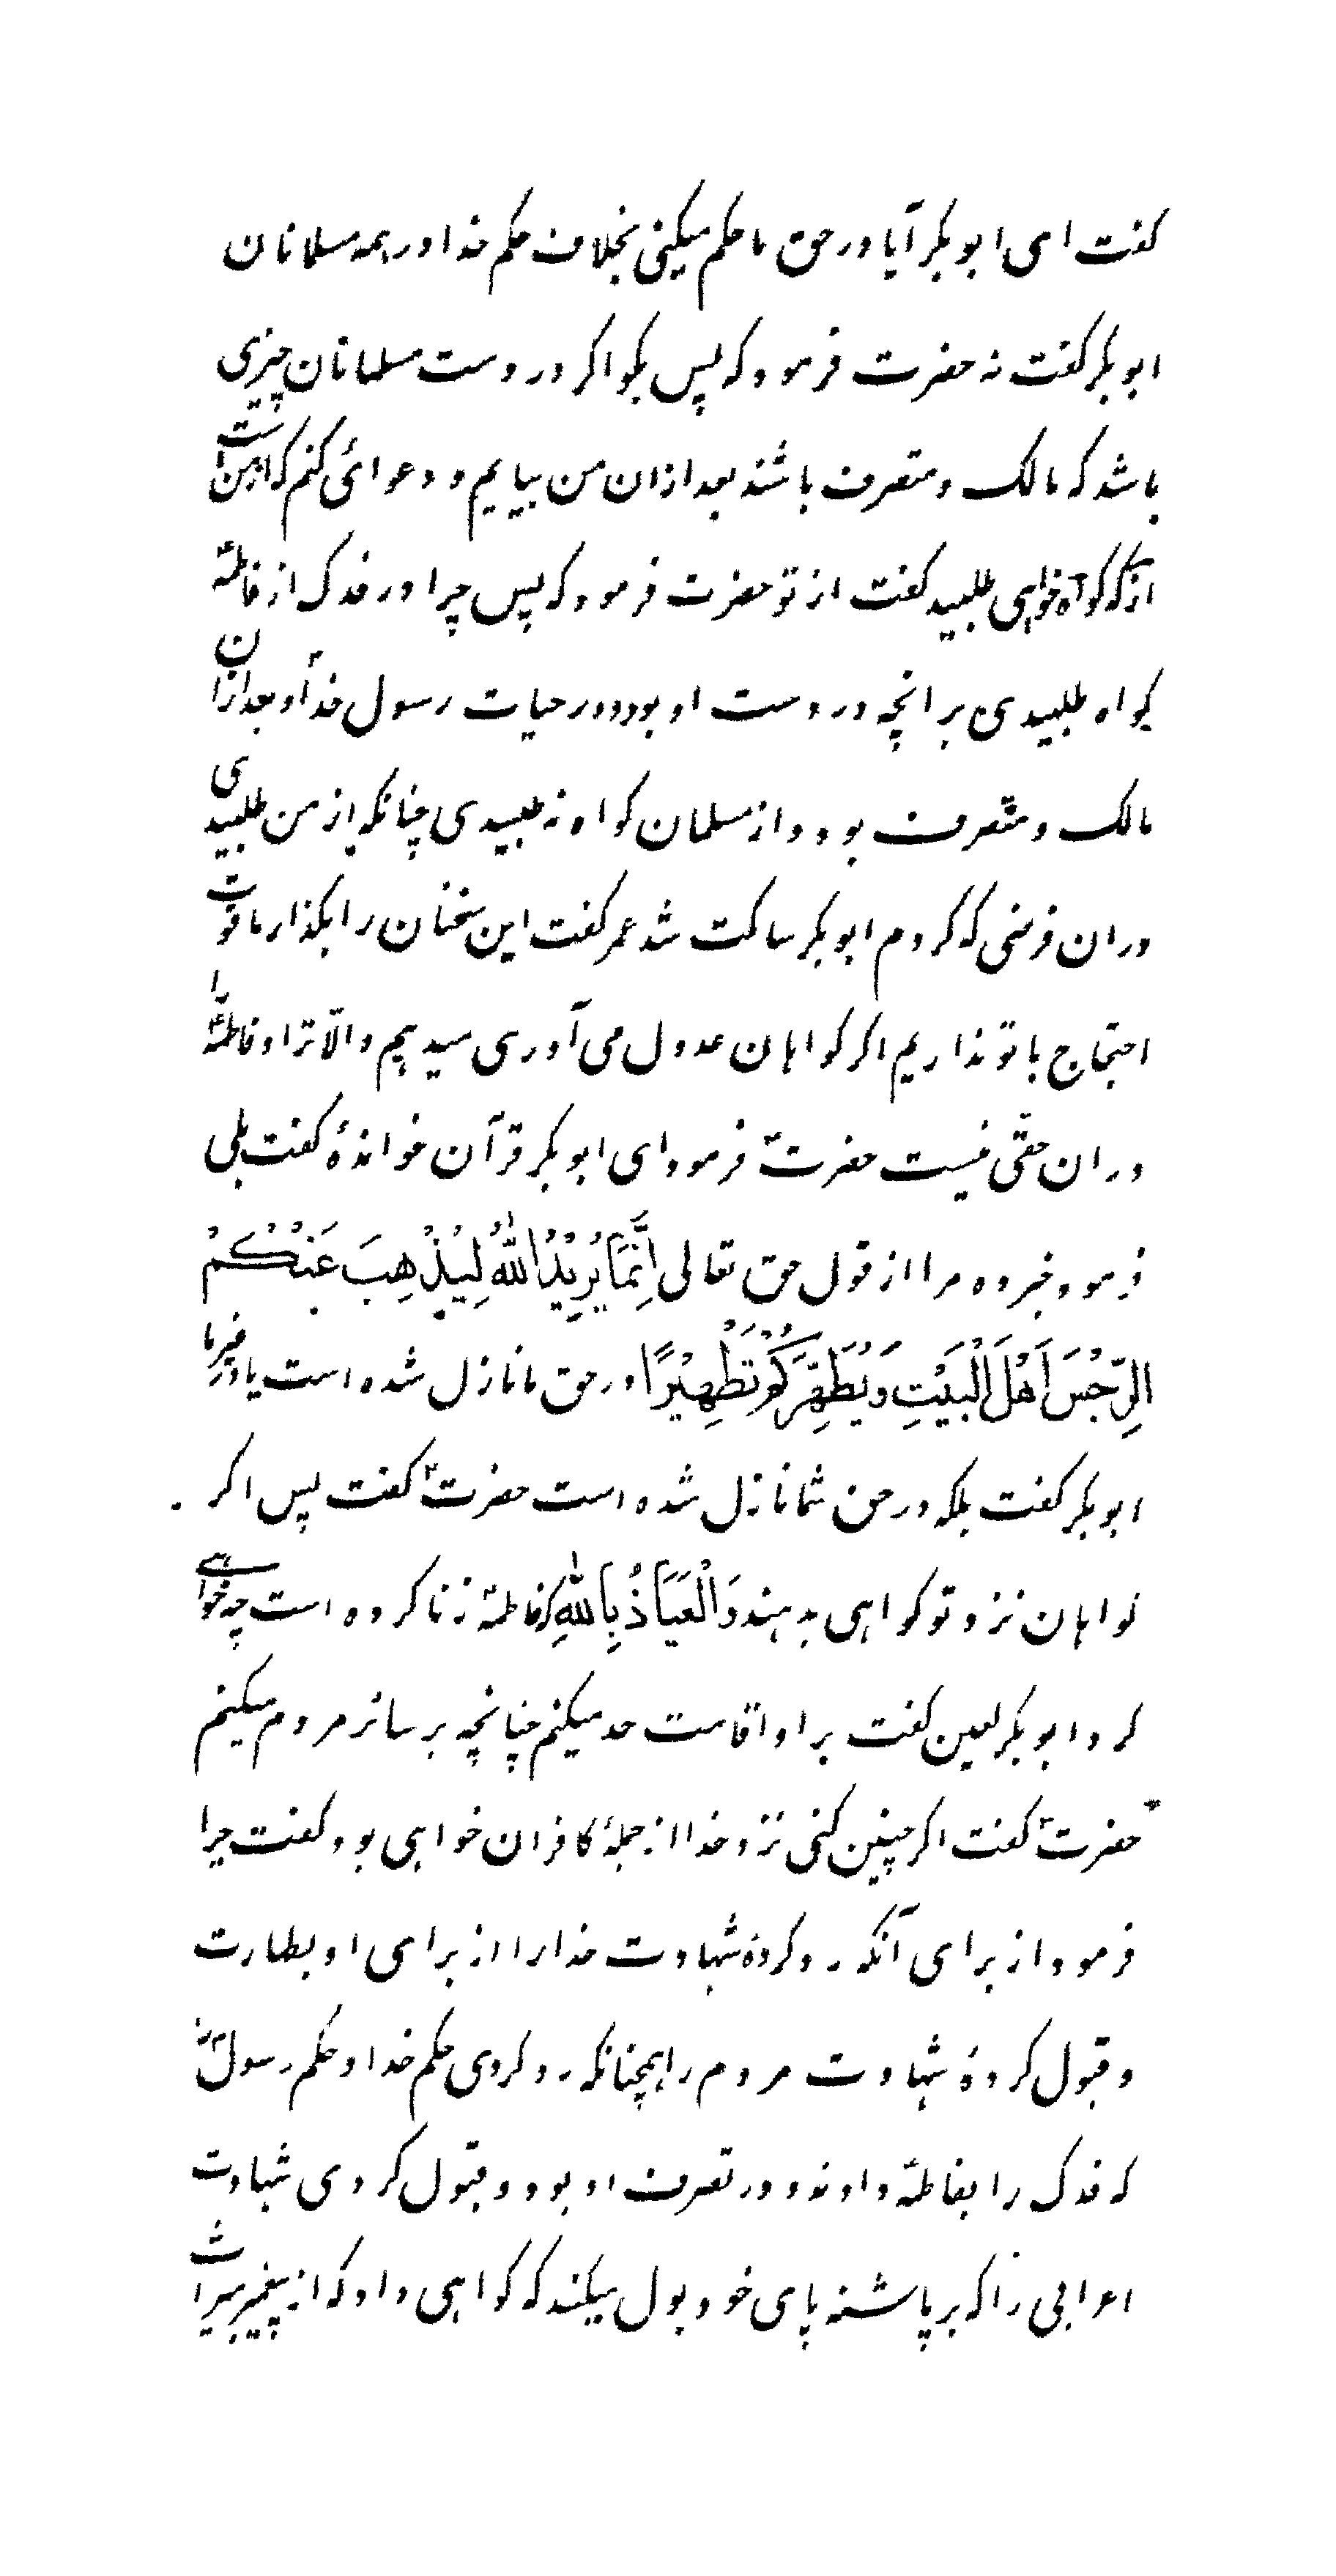 کفت ای ابوبکر آیا در حق ما حکم میکنی بخلاف حکم خدا در همه مسلمانان
ابوبکر کفت نه حضرت فرمود که پس بکو اکر در دست مسلمانان چیزی
باشد که مالک و متصرف باشند بعد ازان من بیایم و دعوائی کنم که از من است
از که کواه خواهی طلبید کفت از تو حضرت فرمود که پس چرا در فدک از فاطمهؑ
کواه طلبیدی بر انچه در دست او بود و در حیات رسول خداؐ و بعد ازان
مالک و متصرف بود و از مسلمان کواه نه طلبیدی چنانکه از من طلبیدی
دران فرضی که کردم ابوبکر ساکت شد عمر کفت این سخنان را بکذار ما قوت
احتجاج با تو نداریم اکر کواهان عدول می آوری میدهیم و الّا ترا و فاطمهؑ را
دران حقّی نیست حضرتؑ فرمود ای ابوبکر قرآن خواندهٔ کفت بلی
فرمود خبر ده مرا از قول حق تعالی اِنَّمَا یُرِیْدُ اللّٰهُ لِیُذْهِبَ عَنْکُمْ
الرِّجْسَ اَهْلَ الْبَیْتِ وَ یُطَهِّرَکُمْ تَطْهِیْرًا در حق ما نازل شده است یا در غیر ما
ابوبکر کفت بلکه در حق شما نازل شده است حضرتؑ کفت پس اکر
کواهان نزد تو کواهی بدهند وَالْعَیَاذُ بِاللّٰهِ که فاطمهؑ زنا کرده است چه خواهی
کرد ابوبکر لعین کفت بر او اقامت حد میکنم چنانچه بر سائر مردم میکنم
حضرتؑ کفت اکر چنین کنی نزد خدا از جملهٔ کافران خواهی بود کفت چرا
فرمود از برای آنکه رد کردهٔ شهادت خدا را از برای او بطهارت
و قبول کردهٔ شهادت مردم را همچنانکه رد کردی حکم خدا و حکم رسولؐ را
که فدک را بفاطمهؑ دادند و در تصرف او بود و قبول کردی شهادت
اعرابی را که بر پاشنه پای خود بول میکند که کواهی داد که از پیغمبر میراث